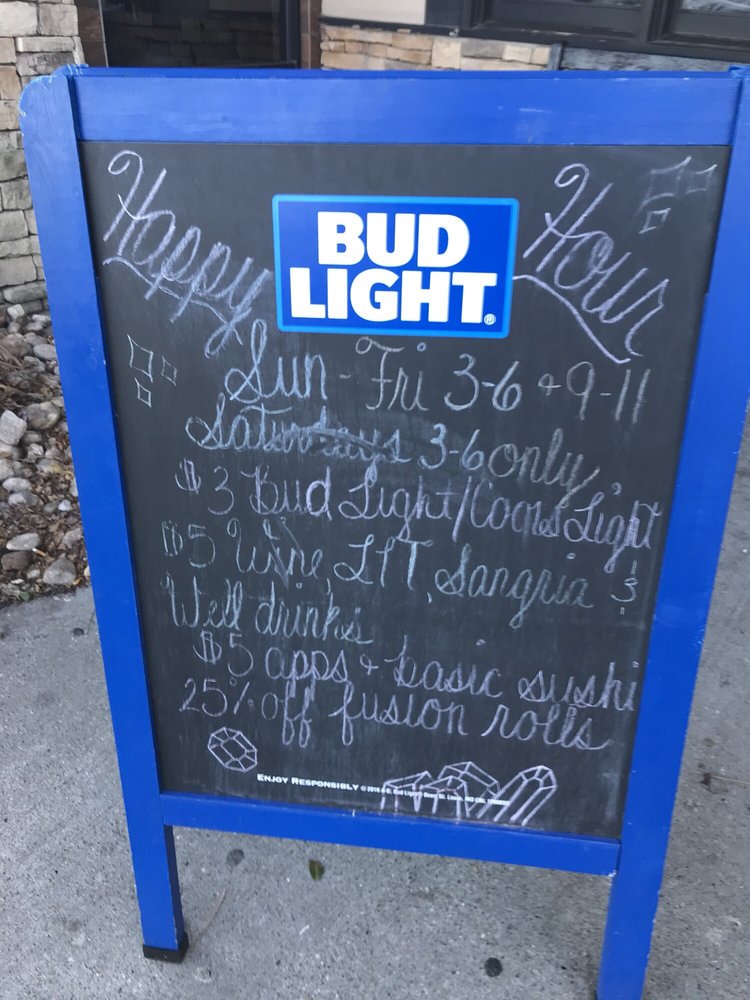 Happy Hour
BUD
LIGHT®
Sun - Fri 3-6 + 9-11
Saturdays 3-6 only
$3 Bud Light/Coors Light
$5 Wine, LIT, Sangria &
Well drinks
$5 apps + basic sushi
25% off fusion rolls
ENJOY RESPONSIBLY